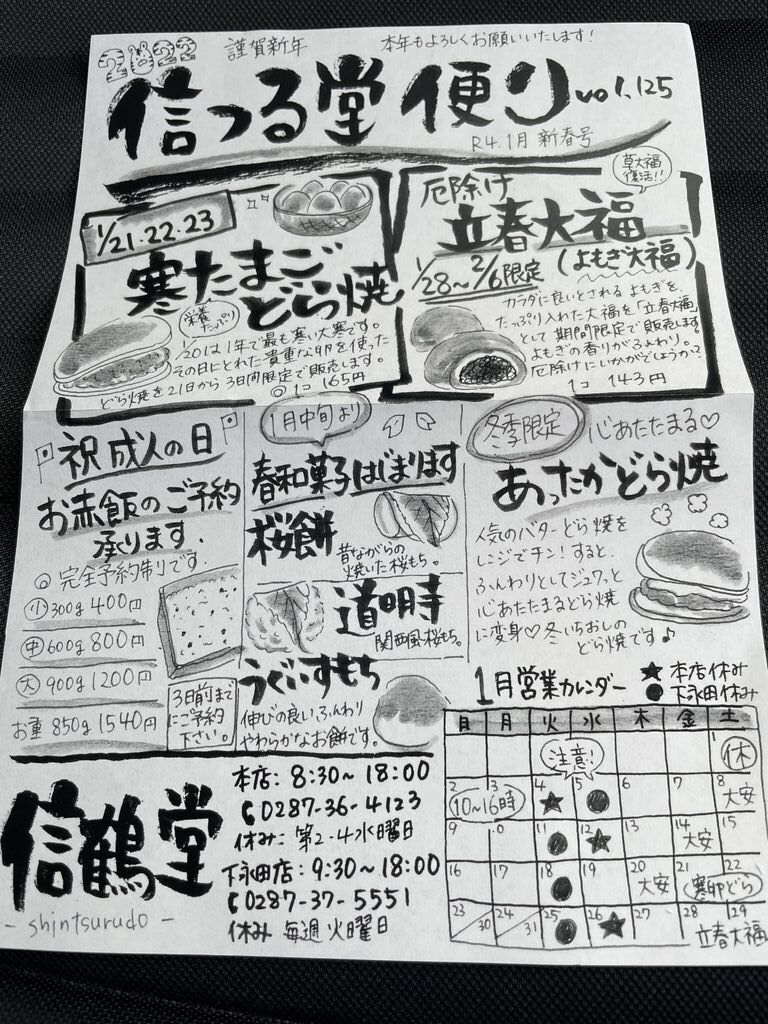 2022
謹賀新年
本年もよろしくお願いいたします!
信つる堂 便り vol.125
R4.1月 新春号
1/21.22.23
寒たまご
どら焼
栄養
たっぷり
1/20は1年で最も寒い大寒です。
その日にとれた貴重な卵を使った
どら焼を21日から3日間限定で販売します。
◎1コ 165円
草大福
復活!!
厄除け
立春大福
1/28~2/6限定 (よもぎ大福)
カラダに良いとされるよもぎを、
たっぷり入れた大福を「立春大福」
として期間限定で販売します。
よもぎの香りがふんわり。
厄除けにいかがでしょうか?
1コ 143円
祝 成人の日
お赤飯のご予約
承ります.
◎完全予約制りです.
小 300g 400円
中 600g 800円
大 900g 1200円
お重 850g 1540円
3日前まで
にご予約
下さい。
1月中旬より
春和菓子はじまります
桜餅
昔ながらの
焼いた桜もち。
道明寺
関西風桜もち。
うぐいすもち
伸びの良いふんわり
やわらかなお餅です。
冬季限定
心あたたまる♡
あったかどら焼
人気のバターどら焼を
レンジでチン!すると、
ふんわりとしてジュワっと
心あたたまるどら焼
に変身♡冬いちおしの
どら焼です♪
1月営業カレンダー
★本店休み
●下永田休み
日 月 火 水 木 金 土
注意!
1
休
2 3 4 5 6 7 8
10~16時 ★ ● 大安
9 10 11 12 13 14 15
● ★ 大安
16 17 18 19 20 21 22
● 大安 寒卵どら
23 24 25 26 27 28 29
30 31 ● ★ 立春大福
信鶴堂
- shintsurudo -
本店: 8:30~18:00
0287-36-4123
休み: 第2.4水曜日
下永田店: 9:30~18:00
0287-37-5551
休み 毎週火曜日